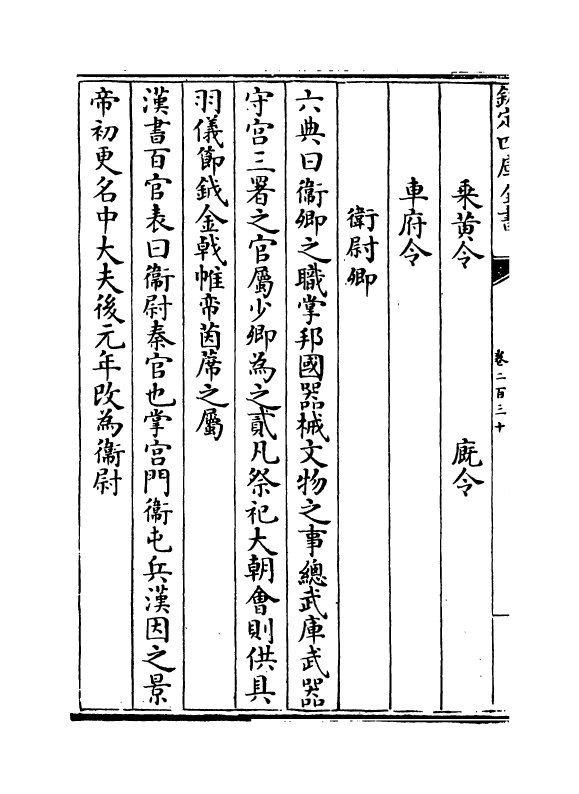 欽定四庫全書
卷二百三十
乘黃令　廐令
車府令
衛尉卿
六典曰衞卿之職掌邦國器械文物之事總武庫武器
守宫三署之官屬少卿為之貳凡祭祀大朝會則供具
羽儀節鉞金㦸帷帟茵蓆之屬
漢書百官表曰衞尉秦官也掌宫門衞屯兵漢因之景
帝初更名中大夫後元年改為衞尉